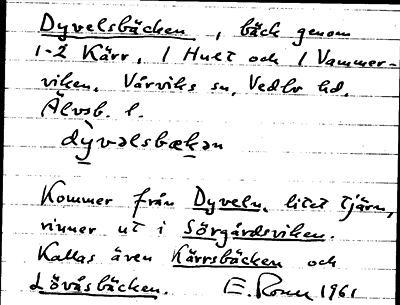 Dyvelsbäcken, bäck genom
1-2 Kärr, 1 Hult och 1 Vammer-
viken. Vårviks sn, Vedbo hd,
Älvsb. l.
dỳvəlsbækən
Kommer från Dyveln, litet tjärn,
rinner ut i Sörgårdsviken.
Kallas även Kärrsbäcken och
Lövåsbäcken. E. 1961